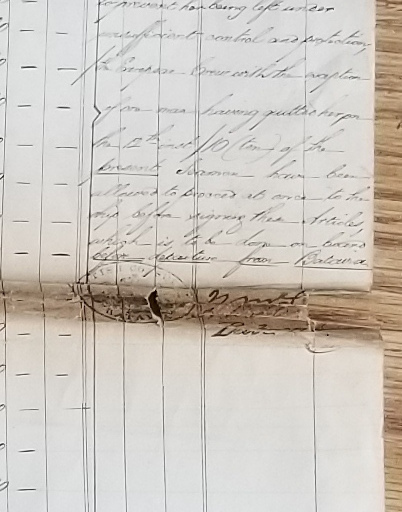 to prevent her being left under
insufficient control and protection
the European Crew with the exception
of one man having quitted her on
the 12th inst /10 (ten) of the
present Seamen have been
allowed to proceed at once to the
ship before signing these Articles,
which is to be done on board
before departure from Batavia